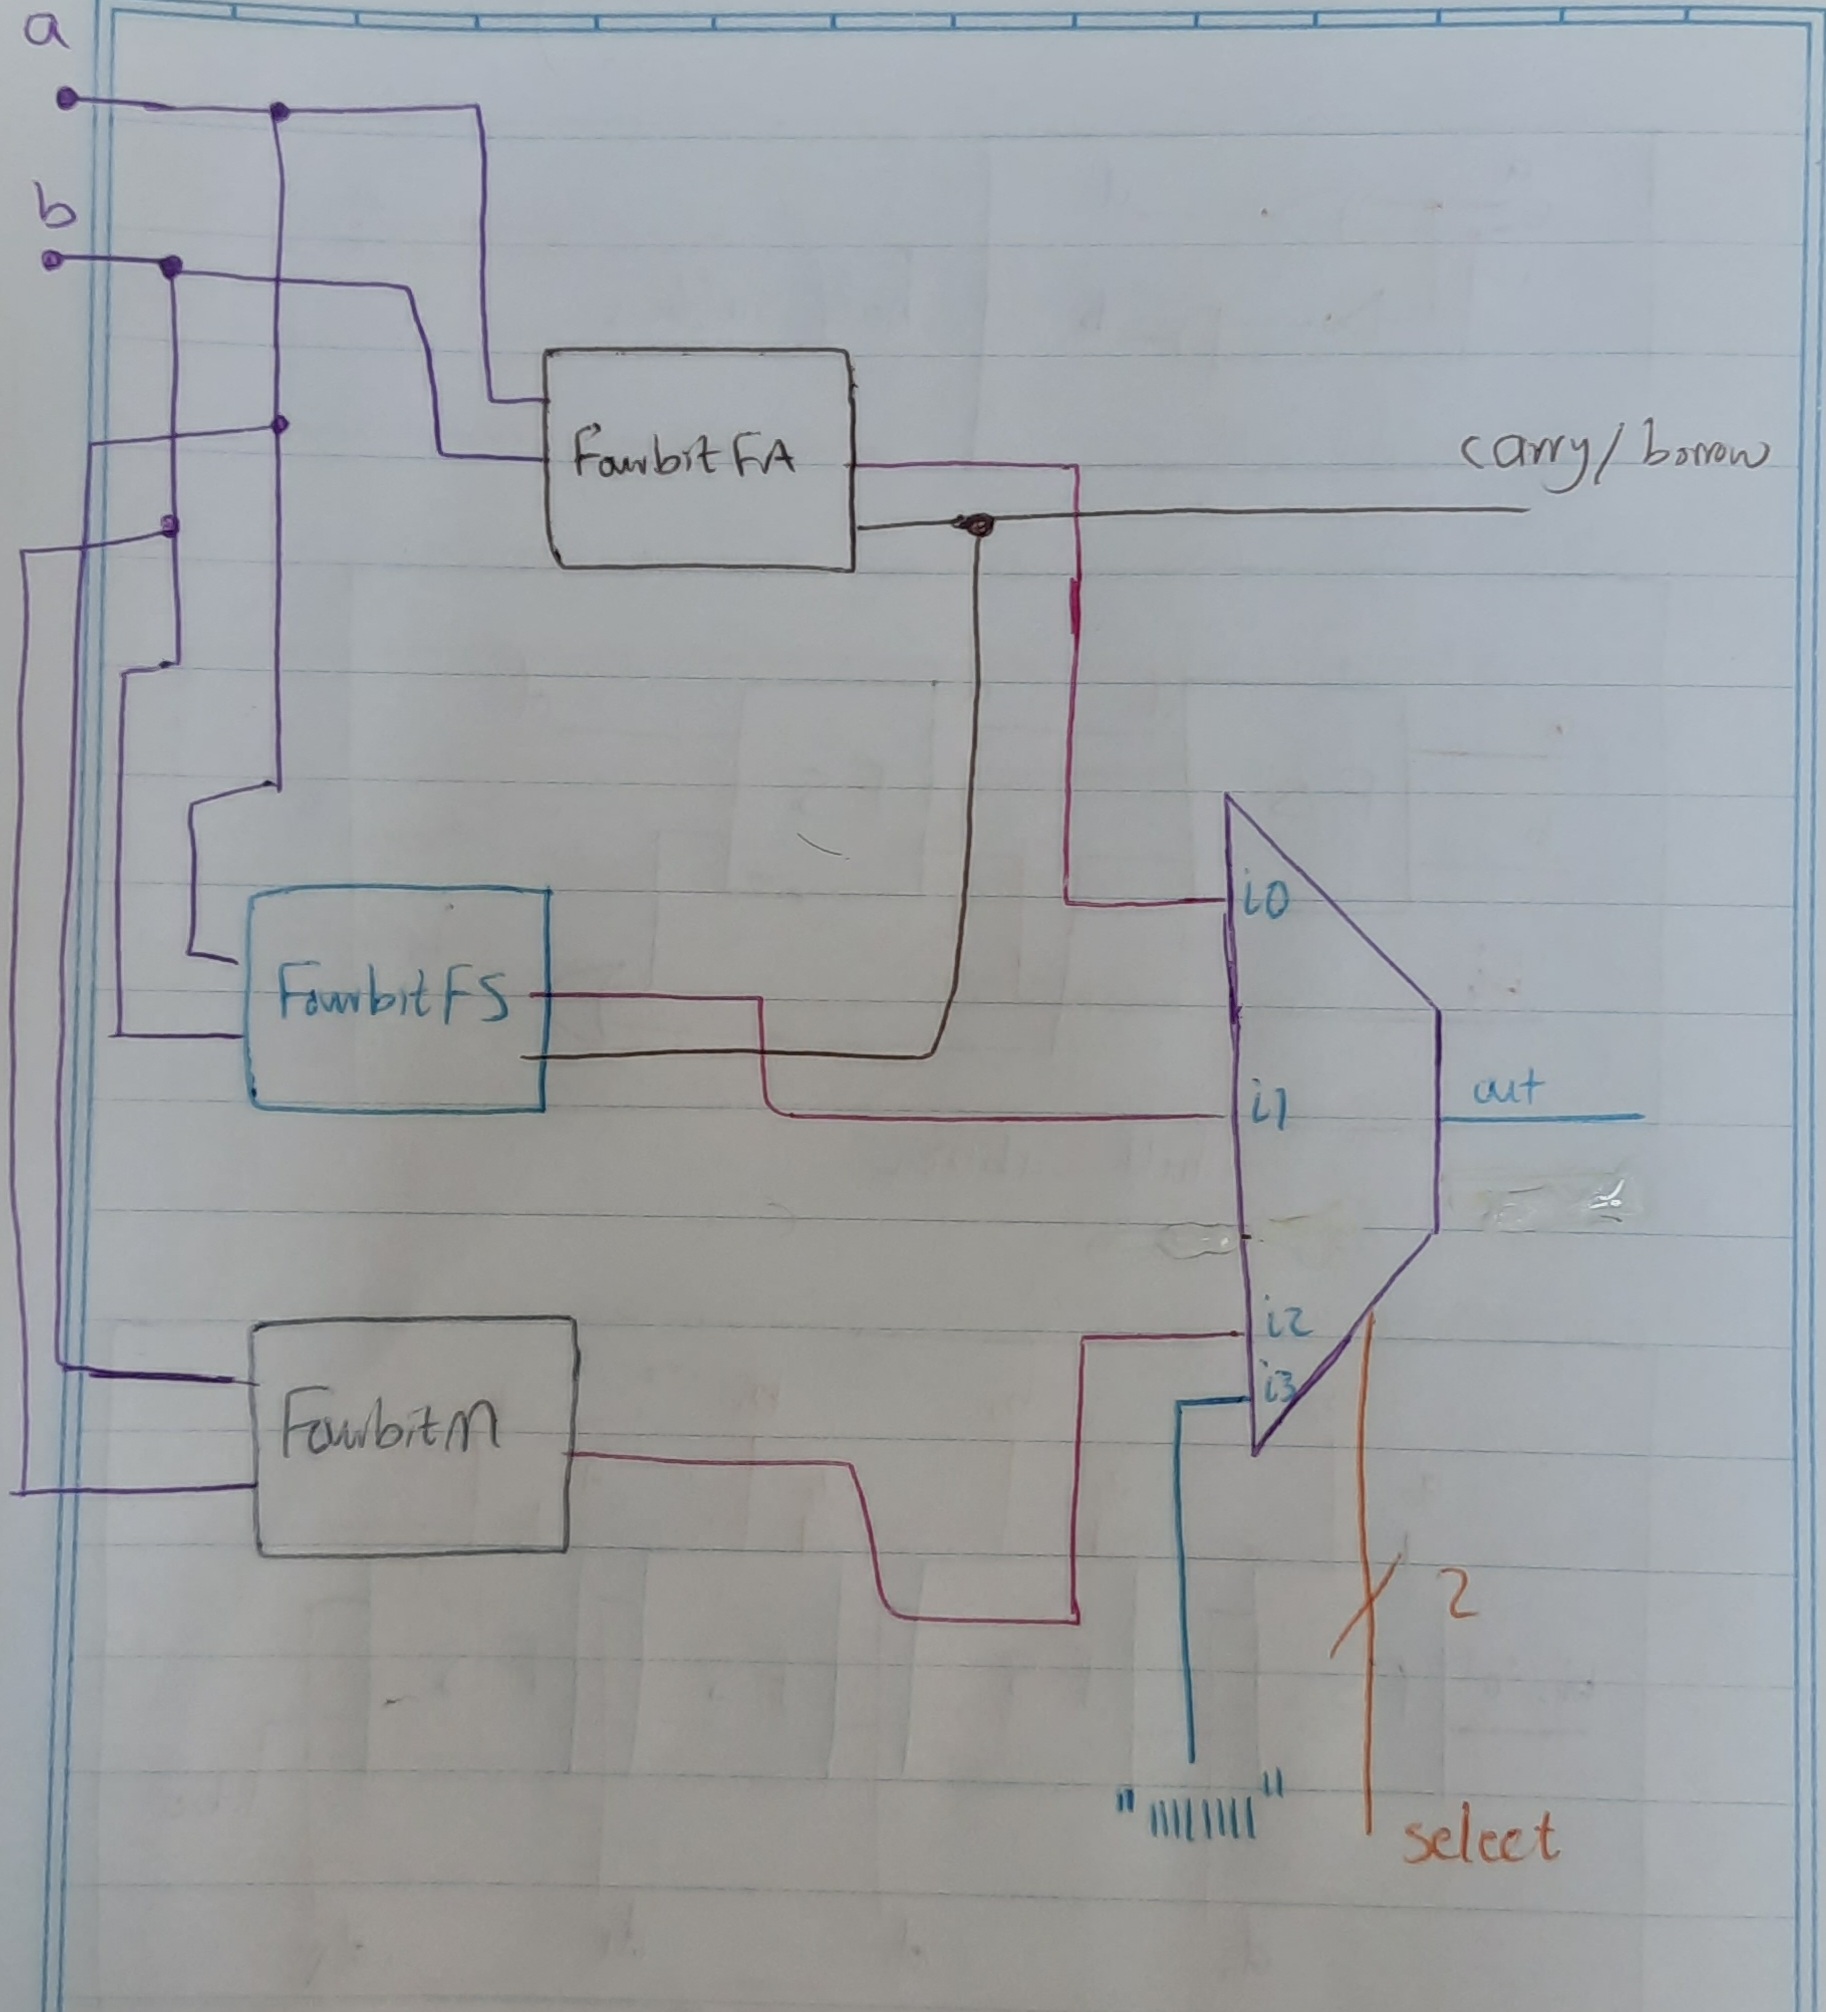 a
b
FourbitFA
carry/borrow
i0
FourbitFS
i1
out
i2
i3
FourbitM
2
"11111111"
select